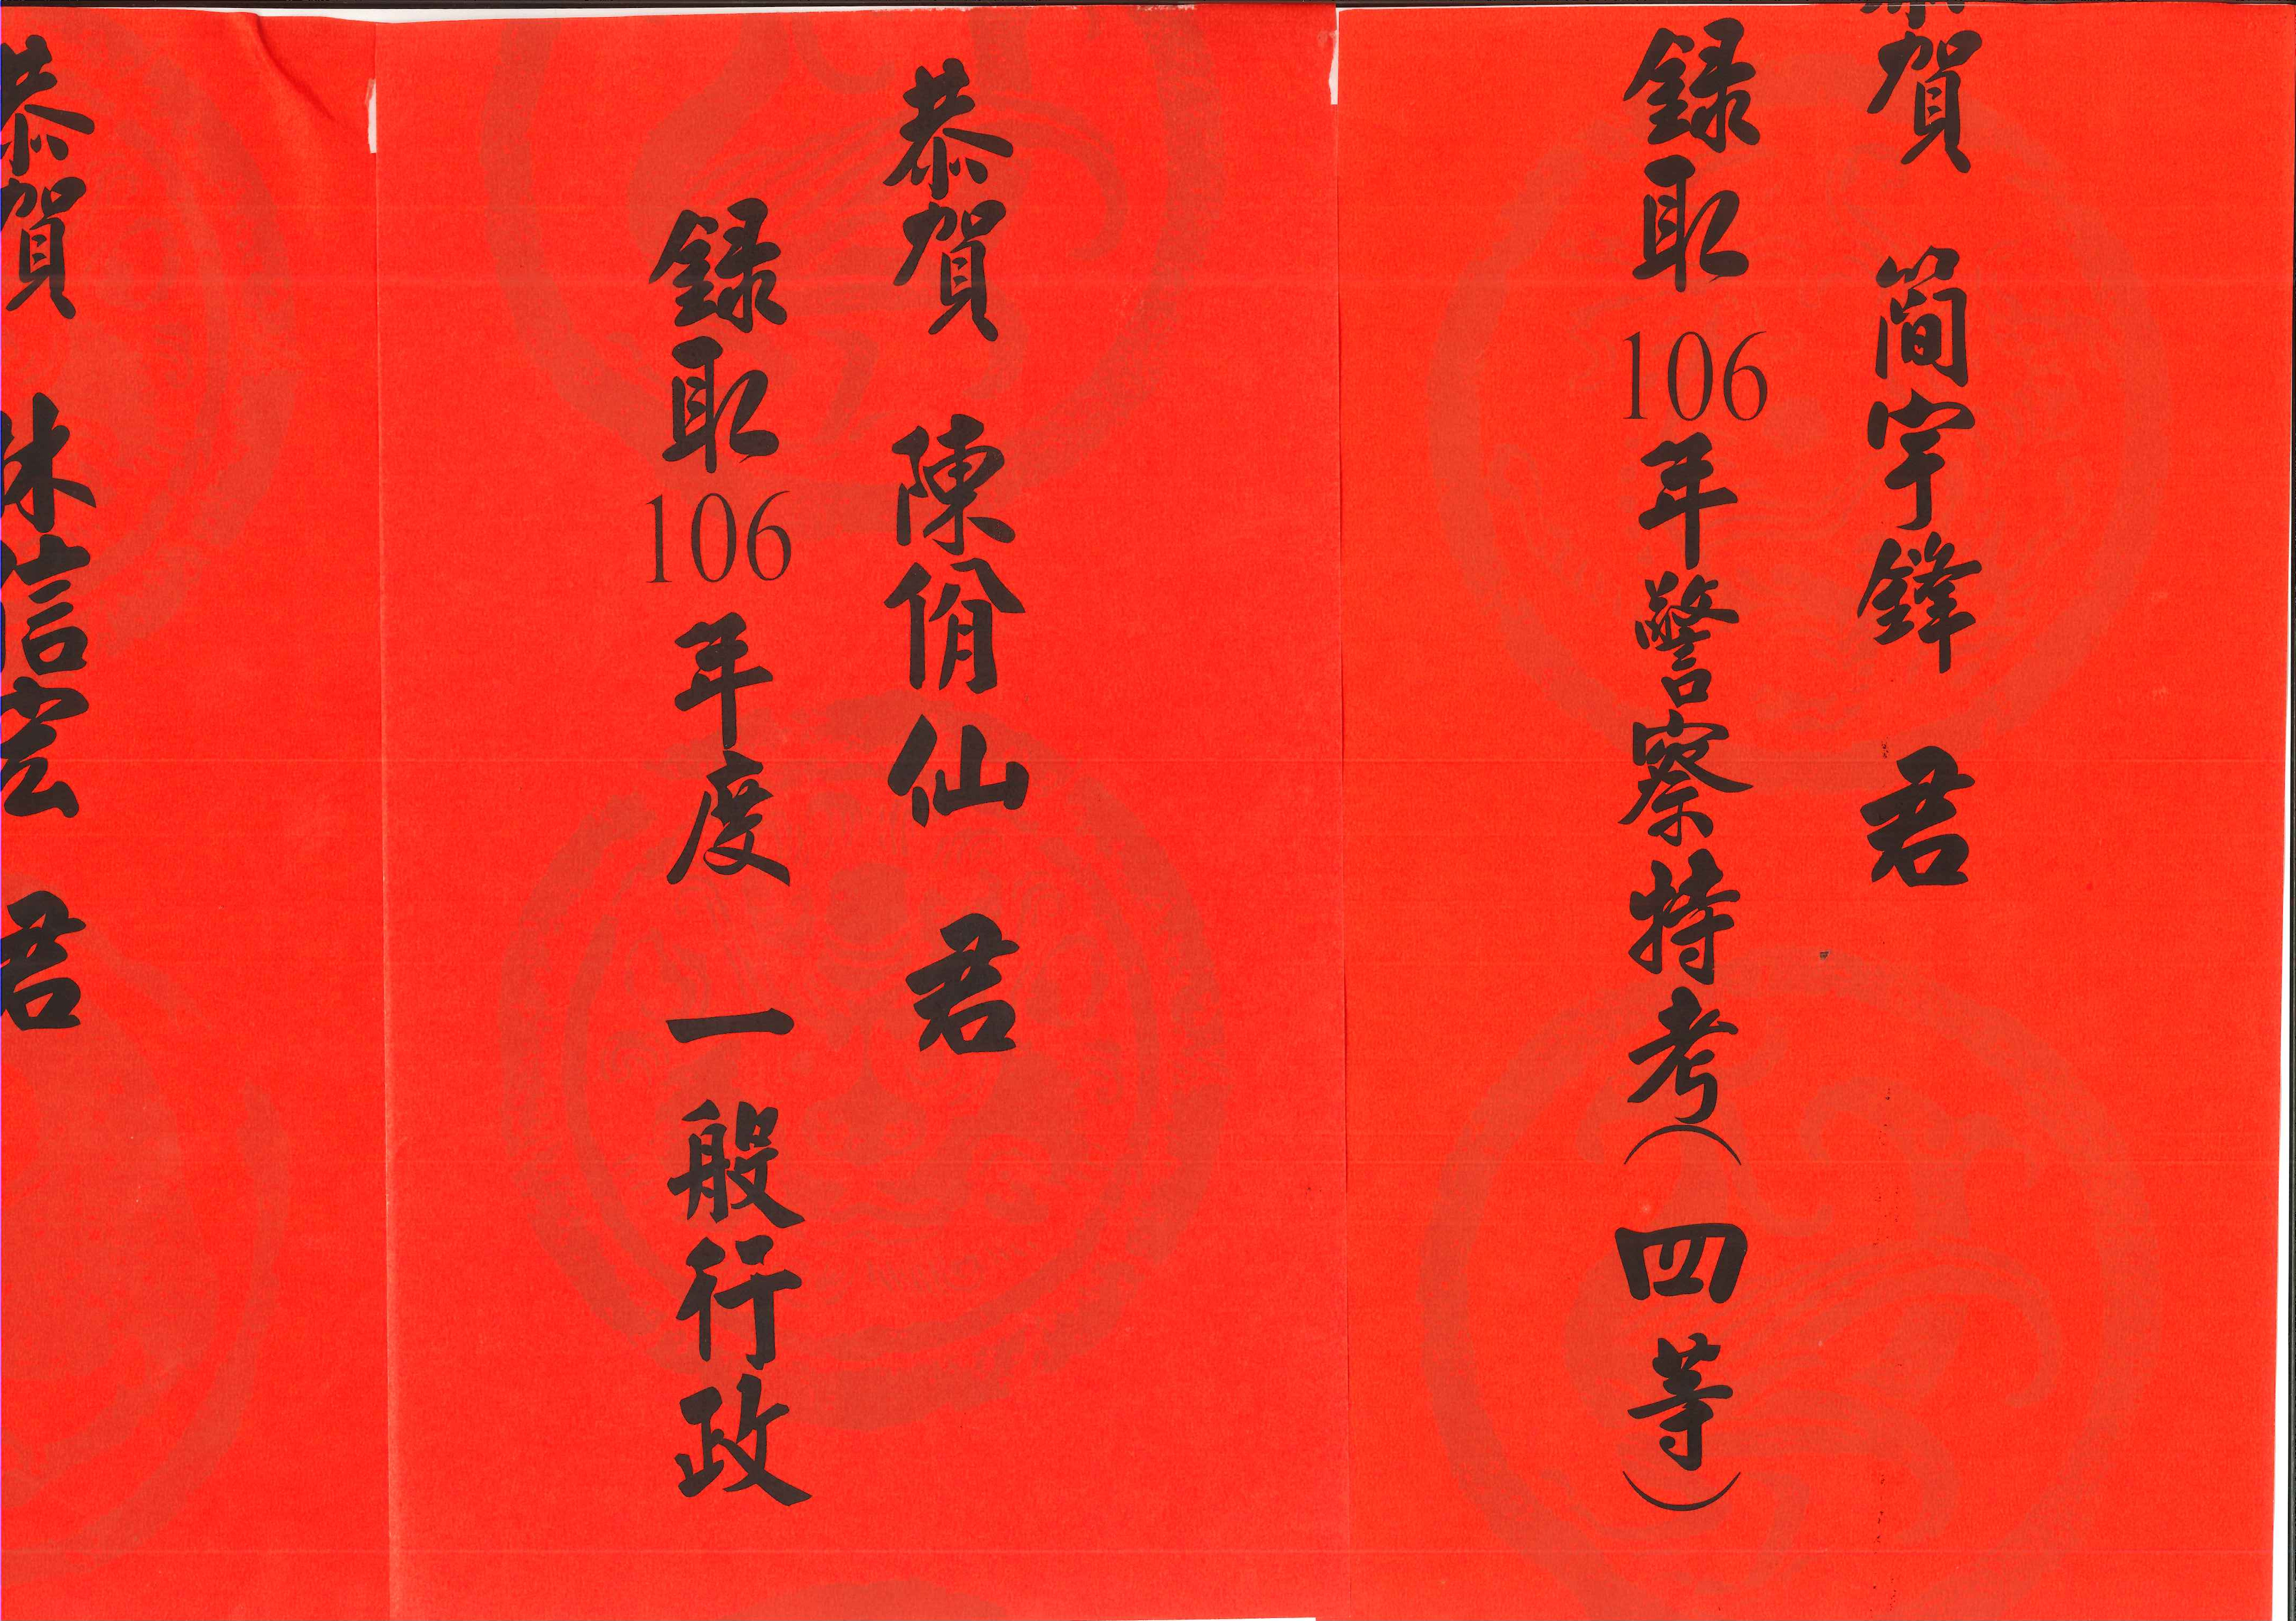 恭賀 簡宇鋒 君
録取106年警察特考(四等)
恭賀 陳佾仙 君
録取106年度 一般行政
恭賀 信宏 君